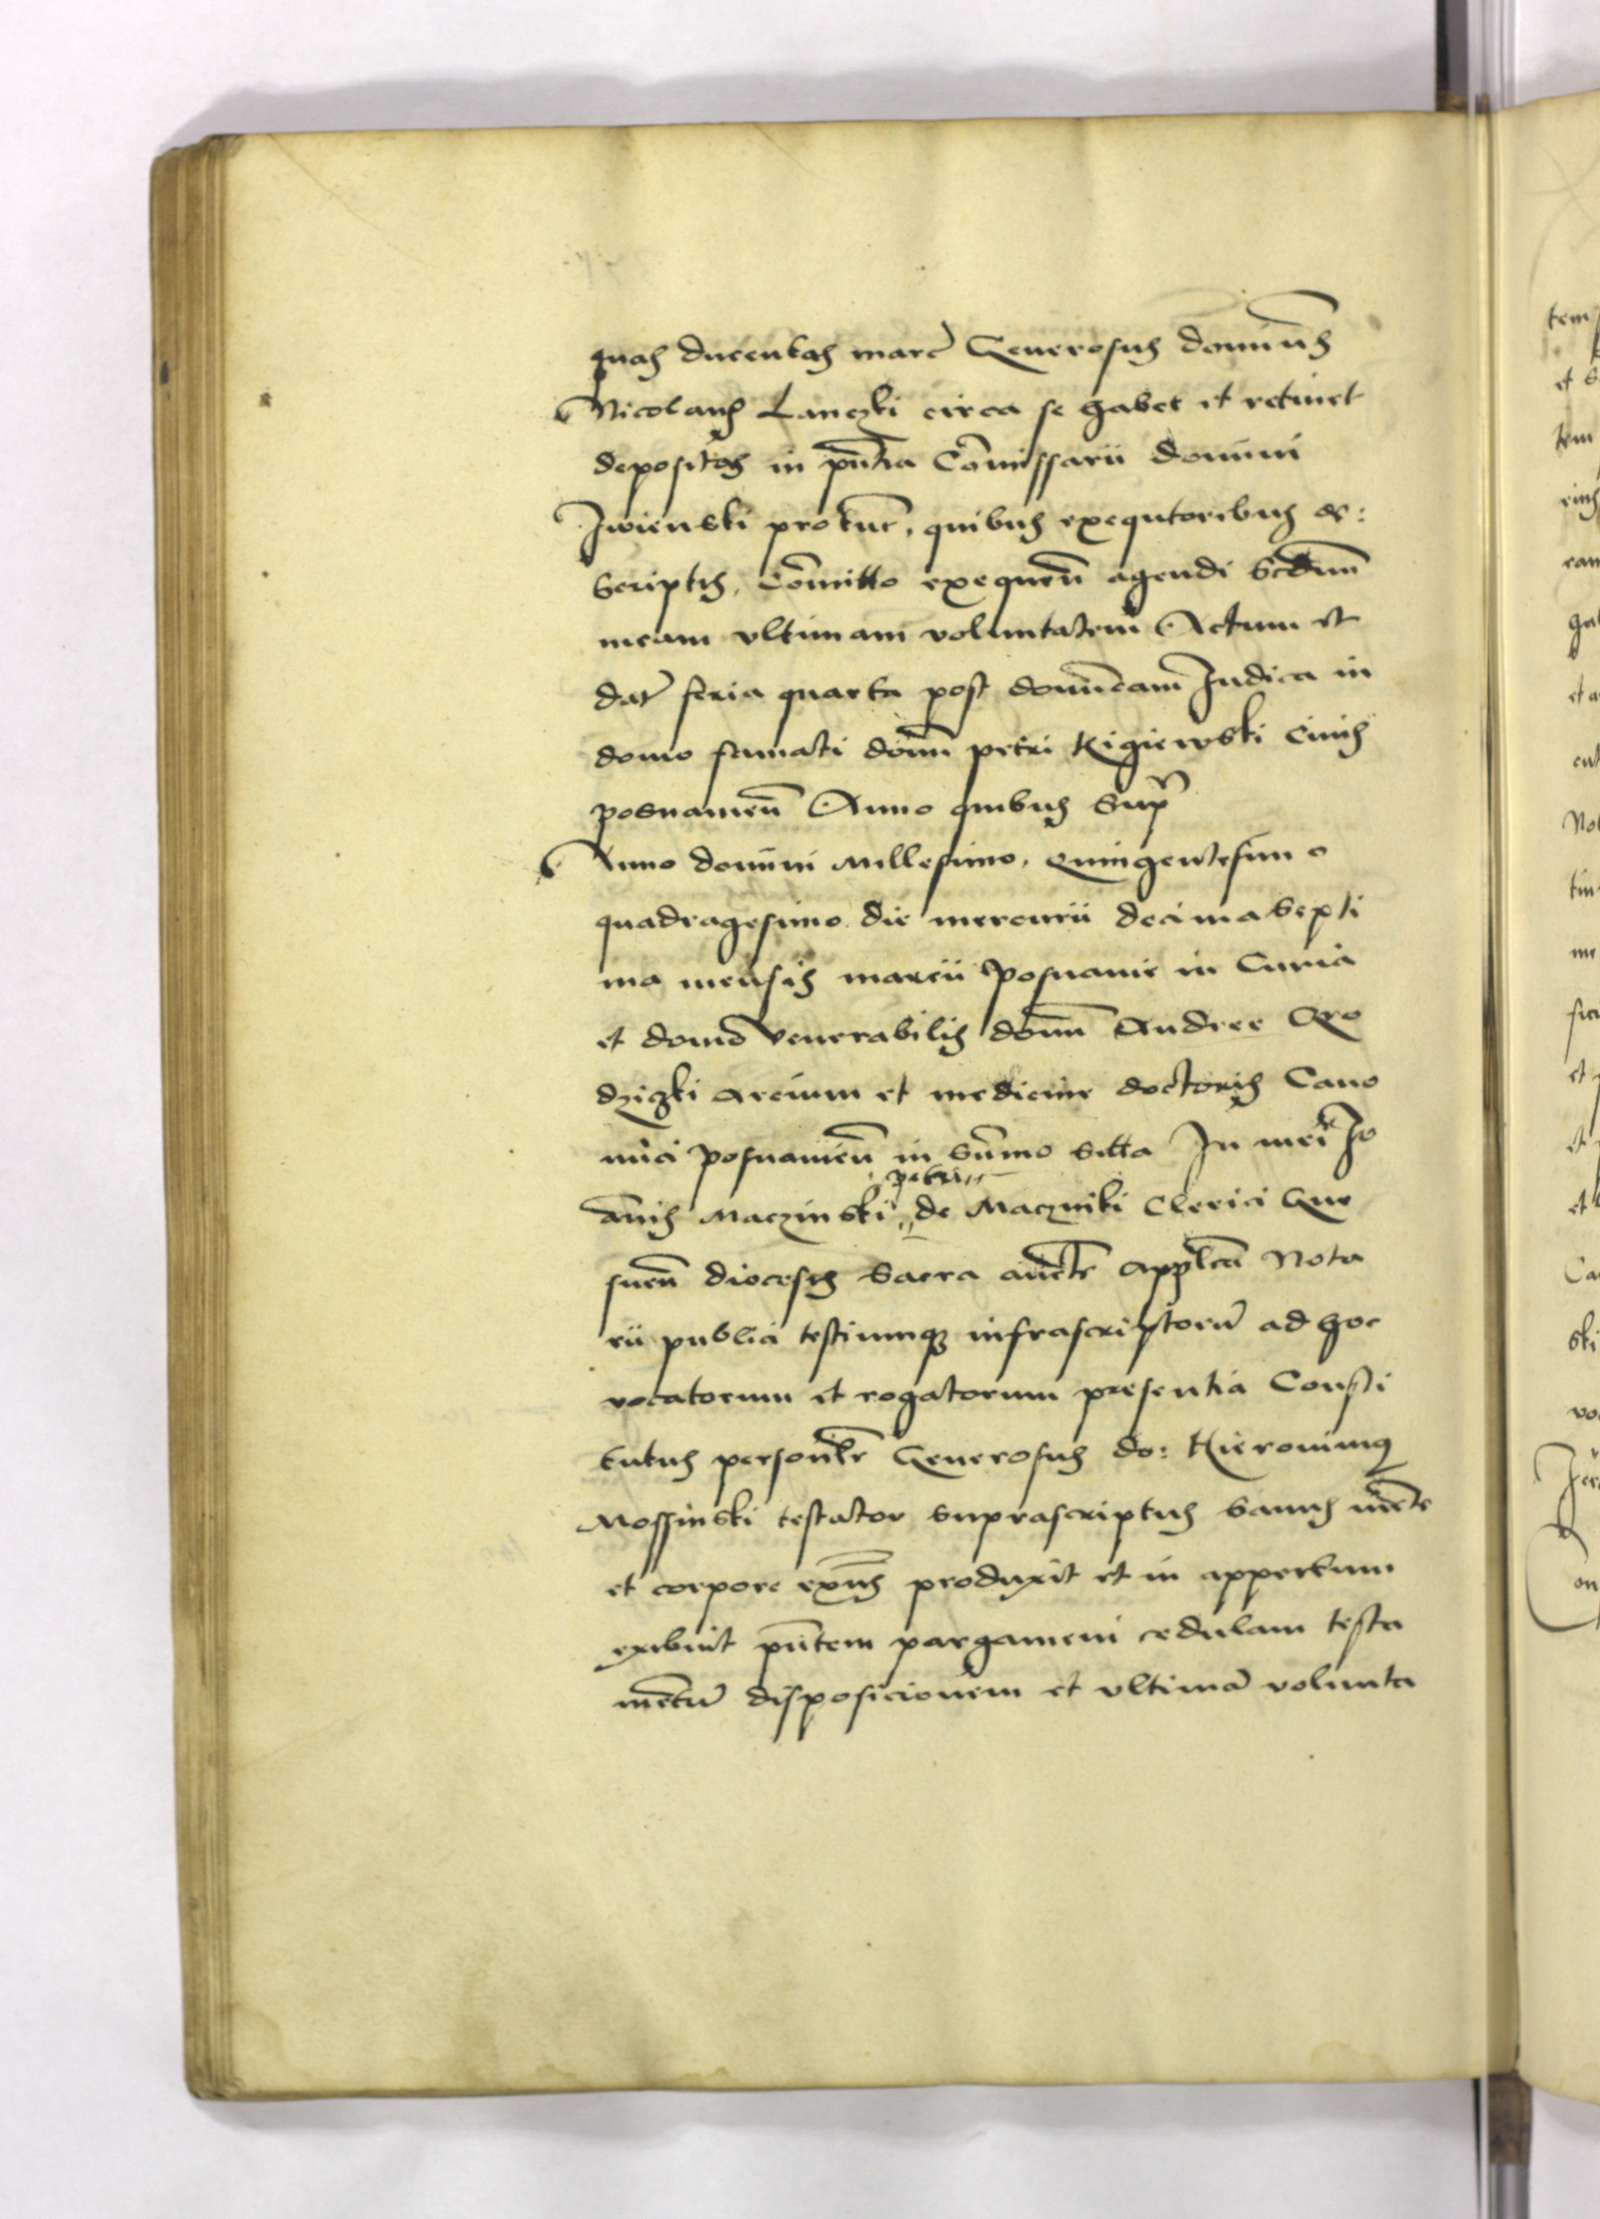 quas ducentas marc̄ Generosus dominūs
Nicolaus Lanczki circa se habet et retinet
depositas in pn̄tia Com̄issarii domini
Iwienski protunc, quibus exequtoribus de:
scriptis, Com̄itto exequen̄ agendi Scd̄um
meam vltimam voluntatem Actum et
dat̄ feria quarta post domīcam Iudica in
domo famati dom̄ petri Kigiewski Ciuis
posnanien̄ Anno quibus Sup̄
Anno domini Millesimo, quingentesimo
quadragesimo die mercurii decima septi
ma mensis marcii posnanie in Curia
et domo Venerabilis dom̄ Andree Gro
dziczki arcium et medicine doctoris Cano
nici posnanien̄ in Sum̄o sitta In mei Io
an̄is Maczinski petri de Maczniki Clerici Gne
snen̄ diocesis Sacra auct̄e appl̄ca Nota
rii publici testiumq3 infrascriptorū ad hoc
vocatorum et rogatorum presentia Consti
tutus personl̄r Generosus do: Hieronimus
Mossinski testator suprascriptus sanus mēte
et corpore exn̄s produxit et in appertum
exibuit pn̄tem pargameni cedulam testa
mētū disposicionem et vltimā volunta
tem
et
tem
ski